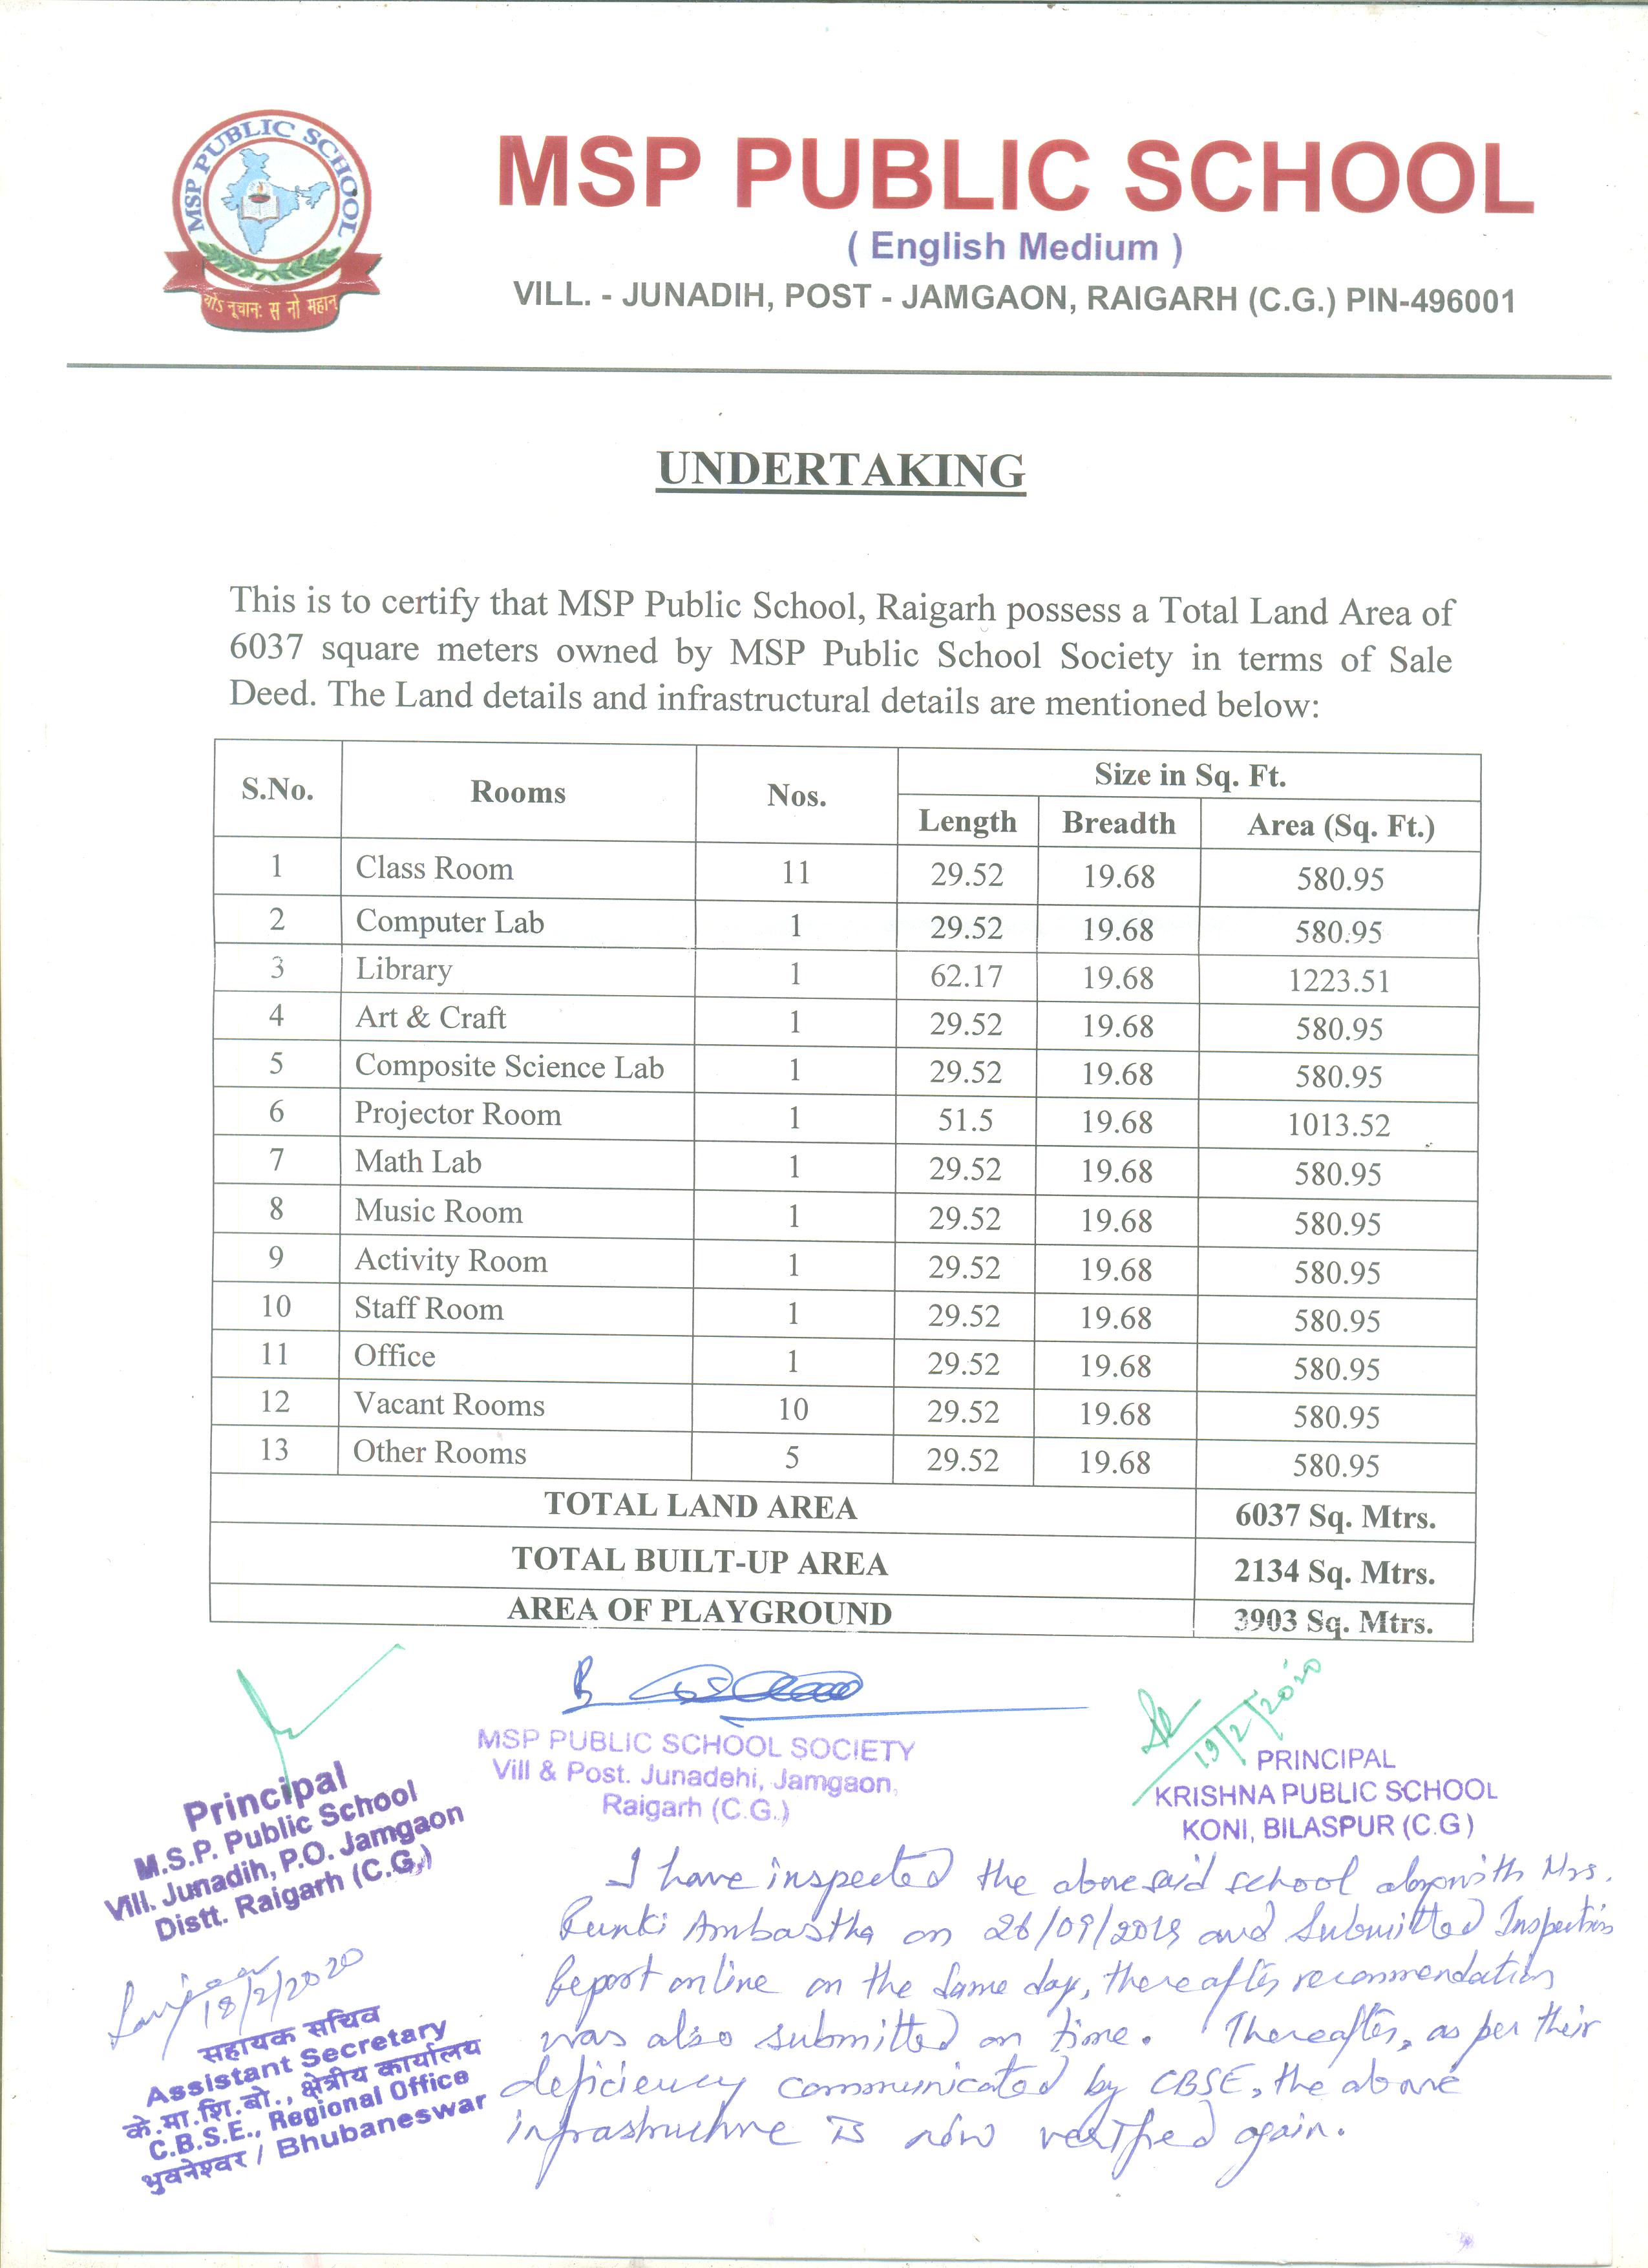 MSP PUBLIC SCHOOL
योऽनूचानः स नो महान
MSP PUBLIC SCHOOL
( English Medium )
VILL. - JUNADIH, POST - JAMGAON, RAIGARH (C.G.) PIN-496001
UNDERTAKING
This is to certify that MSP Public School, Raigarh possess a Total Land Area of
6037 square meters owned by MSP Public School Society in terms of Sale
Deed. The Land details and infrastructural details are mentioned below:
S.No. Rooms Nos. Size in Sq. Ft.
Length Breadth Area (Sq. Ft.)
1 Class Room 11 29.52 19.68 580.95
2 Computer Lab 1 29.52 19.68 580.95
3 Library 1 62.17 19.68 1223.51
4 Art & Craft 1 29.52 19.68 580.95
5 Composite Science Lab 1 29.52 19.68 580.95
6 Projector Room 1 51.5 19.68 1013.52
7 Math Lab 1 29.52 19.68 580.95
8 Music Room 1 29.52 19.68 580.95
9 Activity Room 1 29.52 19.68 580.95
10 Staff Room 1 29.52 19.68 580.95
11 Office 1 29.52 19.68 580.95
12 Vacant Rooms 10 29.52 19.68 580.95
13 Other Rooms 5 29.52 19.68 580.95
TOTAL LAND AREA 6037 Sq. Mtrs.
TOTAL BUILT-UP AREA 2134 Sq. Mtrs.
AREA OF PLAYGROUND 3903 Sq. Mtrs.
Principal
M.S.P. Public School
Vill. Junadih, P.O. Jamgaon
Distt. Raigarh (C.G.)
MSP PUBLIC SCHOOL SOCIETY
Vill & Post. Junadehi, Jamgaon,
Raigarh (C.G.)
19/2/2020
PRINCIPAL
KRISHNA PUBLIC SCHOOL
KONI, BILASPUR (C.G)
18/2/2020
सहायक सचिव
Assistant Secretary
के.मा.शि.बो., क्षेत्रीय कार्यालय
C.B.S.E., Regional Office
भुवनेश्वर / Bhubaneswar
I have inspected the above said school alongwith Mrs.
Ambastha on 26/09/2019 and Submitted Inspection
Report online on the same day, thereafter recommendation
was also submitted on time. Thereafter, as per their
deficiency communicated by CBSE, the above
infrastructure is now verified again.